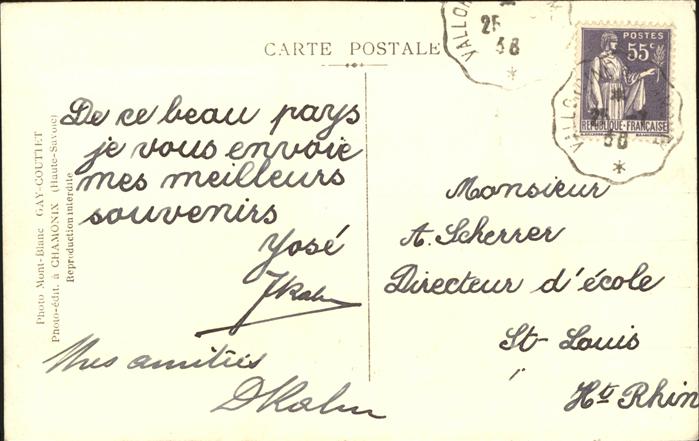 CARTE POSTALE
VALLO
25
38
*
POSTES
55c
RÉPUBLIQUE-FRANÇAISE
VALLO
38
*
De ce beau pays
je vous envoie
mes meilleurs
souvenirs
Yosé
JKahn
Mes amitiés
DKahn
Monsieur
A. Scherrer
Directeur d'école
St-Louis
Ht Rhin
Photo Mont-Blanc GAY-COUTTET
Photo-édit. à CHAMONIX (Haute-Savoie)
Reproduction interdite